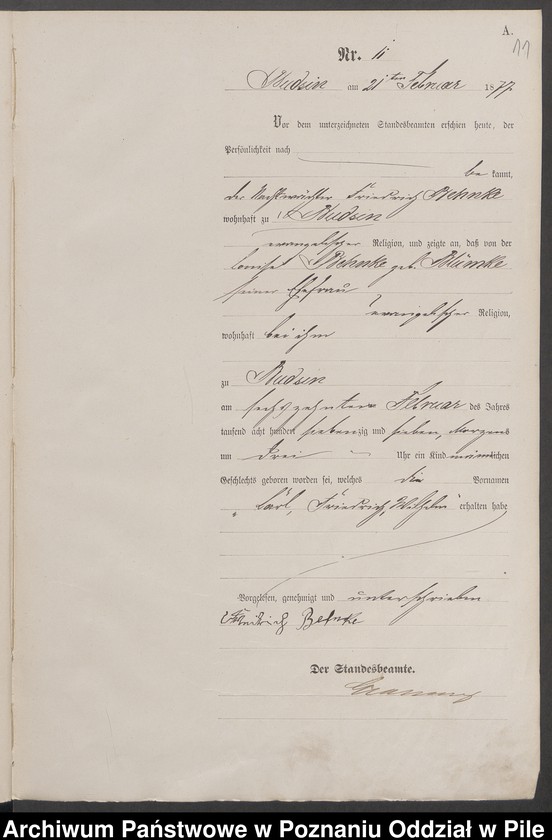 A.
11
Nr. 11
Budsin am 21ten Februar 1877
Vor dem unterzeichneten Standesbeamten erschien heute, der
Persönlichkeit nach
bekannt,
der Nachtwächter Friedrich Behnke
wohnhaft zu Budsin
evangelischer Religion, und zeigte an, daß von der
Louise Behnke geb. Blümke
seiner Ehefrau
evangelischer Religion,
wohnhaft bei ihm
zu Budsin
am sechszehnten Februar des Jahres
tausend acht hundert siebenzig und sieben, Morgens
um drei Uhr ein Kind männlichen
Geschlechts geboren worden sei, welches die Vornamen
"Carl, Friedrich, Wilhelm" erhalten habe
Vorgelesen, genehmigt und unterschrieben
Friedrich Behnke
Der Standesbeamte.
Archiwum Państwowe w Poznaniu Oddział w Pile